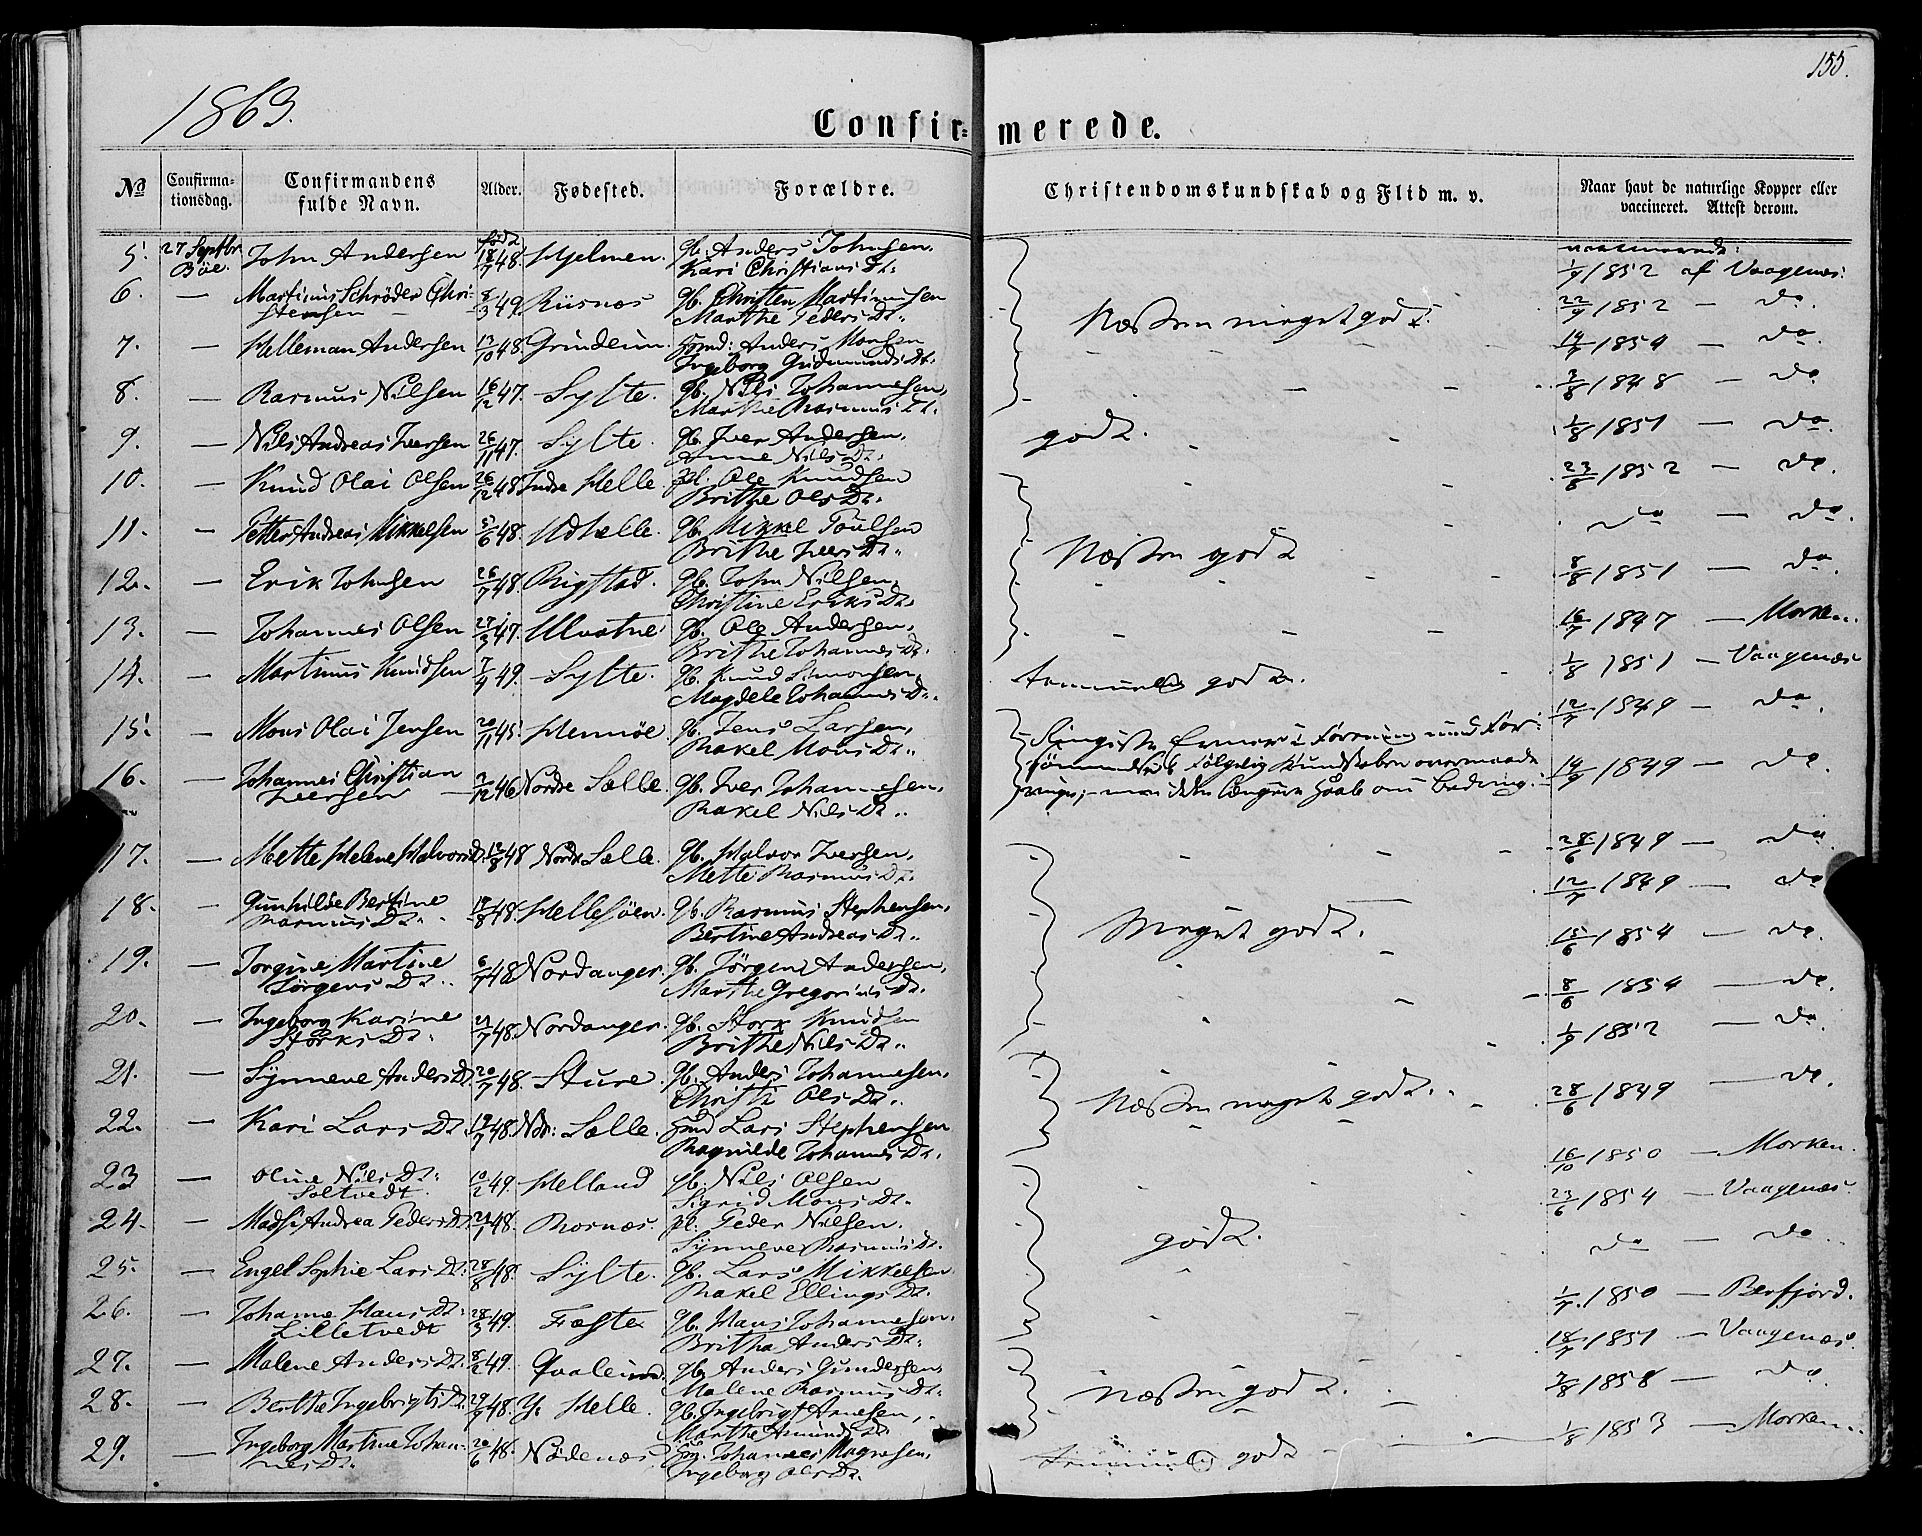 155.
1863.
Confir= merede.
No
Confirma-
tionsdag.
Confirmandens
fulde Navn.
Alder.
Fødested.
Forældre.
Christendomskundskab og Flid m. v.
Naar havt de naturlige Kopper eller
vaccineret. Attest derom.
5. 27 Septbr. Böe. John Andersen født 18/7 48. Hjelmen. Gb. Anders Johnsen. Kari Christians Dt. 1/9 1852 af Vaagenæs.
6. — Martinus Schröder Chri-stensen 8/3 49. Riisnæs Gb. Christen Martinusen Marthe Peders Dt. Næsten meget godt. 22/9 1852 — do
7. — Helleman Andersen 13/10 48. Grindeim. Hmd: Anders Monsen Ingeborg Gudmunds Dt. 19/7 1854 — do.
8. — Rasmus Nilsen 16/12 47. Sylte. Gb. Nils Johannesen, Marthe Rasmus Dt. 3/8 1848 — do
9. — Nils Andreas Iversen 26/11 47. Sylte. Gb. Iver Andersen, Anne Nils Dt. godt. 1/8 1851 — do.
10. — Knud Olai Olsen 26/12 48. Indre Helle. pl. Ole Knudsen Brithe Ols Dt. 23/6 1852 — do.
11. — Petter Andreas Mikkelsen 3/6 48. Udhelle. Gb. Mikkel Poulsen Brithe Ivers Dt. Næsten godt do — do.
12. — Erik Johnsen 26/7 48. Rigstad. Gb. John Nilsen, Christine Eriks Dt. 8/8 1851 — do.
13. — Johannes Olsen 27/3 47. Ulvatne Gb. Ole Andersen, Brithe Johannes Dt. 16/7 1847 — Morken.
14. — Martinus Knudsen 7/4 49. Sylte. Gb. Knud Simonsen, Magdele Johannes Dt. temmelig godt. 1/8 1851 — Vaagenæs
15. — Mons Olai Jensen 20/11 45. Hennöe Gb. Jens Larsen, Rakel Mons Dt. 12/7 1849 — do.
16. — Johannes Christian Iversen 2/12 46 Nordre Sælle. Gb. Iver Johannesen, Rakel Nils Dt. 19/9 1849 — do.
17. — Mette Helene Halvors Dt. 13/8 48 Nordr Sælle. Gb. Halvor Iversen, Mette Rasmus Dt. 28/6 1849 — do
18. — Gunhilde Bertine Rasmus Dt. 19/8 48. Hellesöen. Gb. Rasmus Stephensen, Bertine Andreas Dt. Meget godt. 12/7 1849 — do
19. — Jorgine Martine Jörgens Dt. 6/7 48 Nordanger. Gb. Jörgen Andersen, Marthe Gregorius Dt. 15/6 1854 — do.
20. — Ingeborg Karine Storks Dt. 21/7 48. Nordanger. Gb. Stork Knudsen Brithe Nils Dt. 8/6 1854 — do.
21. — Synneve Anders Dt. 20/7 48. Sture. Gb. Anders Johannesen, Christi Ols Dt. Næsten meget godt. 1/9 1852 — do.
22. — Kari Lars Dt. 19/7 48. Ndr: Sælle. Hmd Lars Stephensen Ragnilde Johannes Dt. 28/6 1849 — do.
23 — Oline Nils Dt. Soltvedt. 10/2 49. Helland Gb. Nils Olsen Sigrid Mons Dt. 16/10 1850 — Morken.
24. — Madsi Andrea Peders Dt. 24/1 48. Rosnæs. pl: Peder Nilsen. Synneve Rasmus Dt. godt. 23/6 1854 — Vaagenæs.
25. — Engel Sophie Lars Dt. 28/8 48. Sylte. Gb. Lars Mikkelsen Rakel Ellings Dt. do — do.
26. — Johanne Hans Dt. Lilletvedt 28/3 49. Feste Gb. Hans Johannesen. Britha Anders Dt. 1/7 1850 — Berfjord.
27. — Malene Anders Dt. 8/2 49. Qvaleim. Gb. Anders Gundersen, Malene Rasmus Dt. 18/7 1851 — Vaagenæs.
28. — Berthe Ingebrigts Dt. 29/9 48. Y. Helle. Gb. Ingebrigt Arnesen, Marthe Amunds Dt. næsten godt. 3/8 1858 — do.
29. — Ingeborg Martine Johan-nes Dt. 20/6 48. Nödenæs Johannes Magnesen, Ingeborg Ols Dt. temmelig godt 1/8 1853 — Morken.